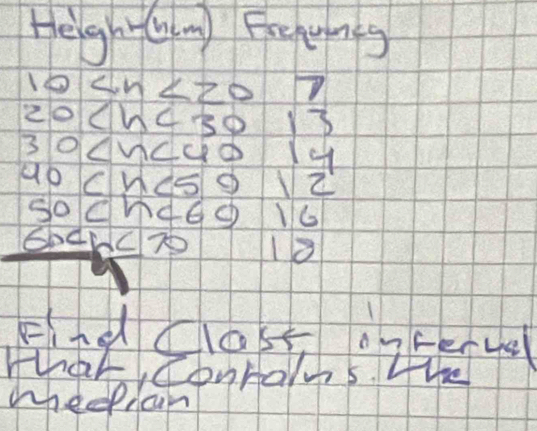 Height (h cm) Frequency
10 < h < 20 7
20 < h < 30 13
30 < h < 40 14
40 < h < 50 12
50 < h < 60 16
60 < h < 70 10
Find Class interval
that, Contains the
median